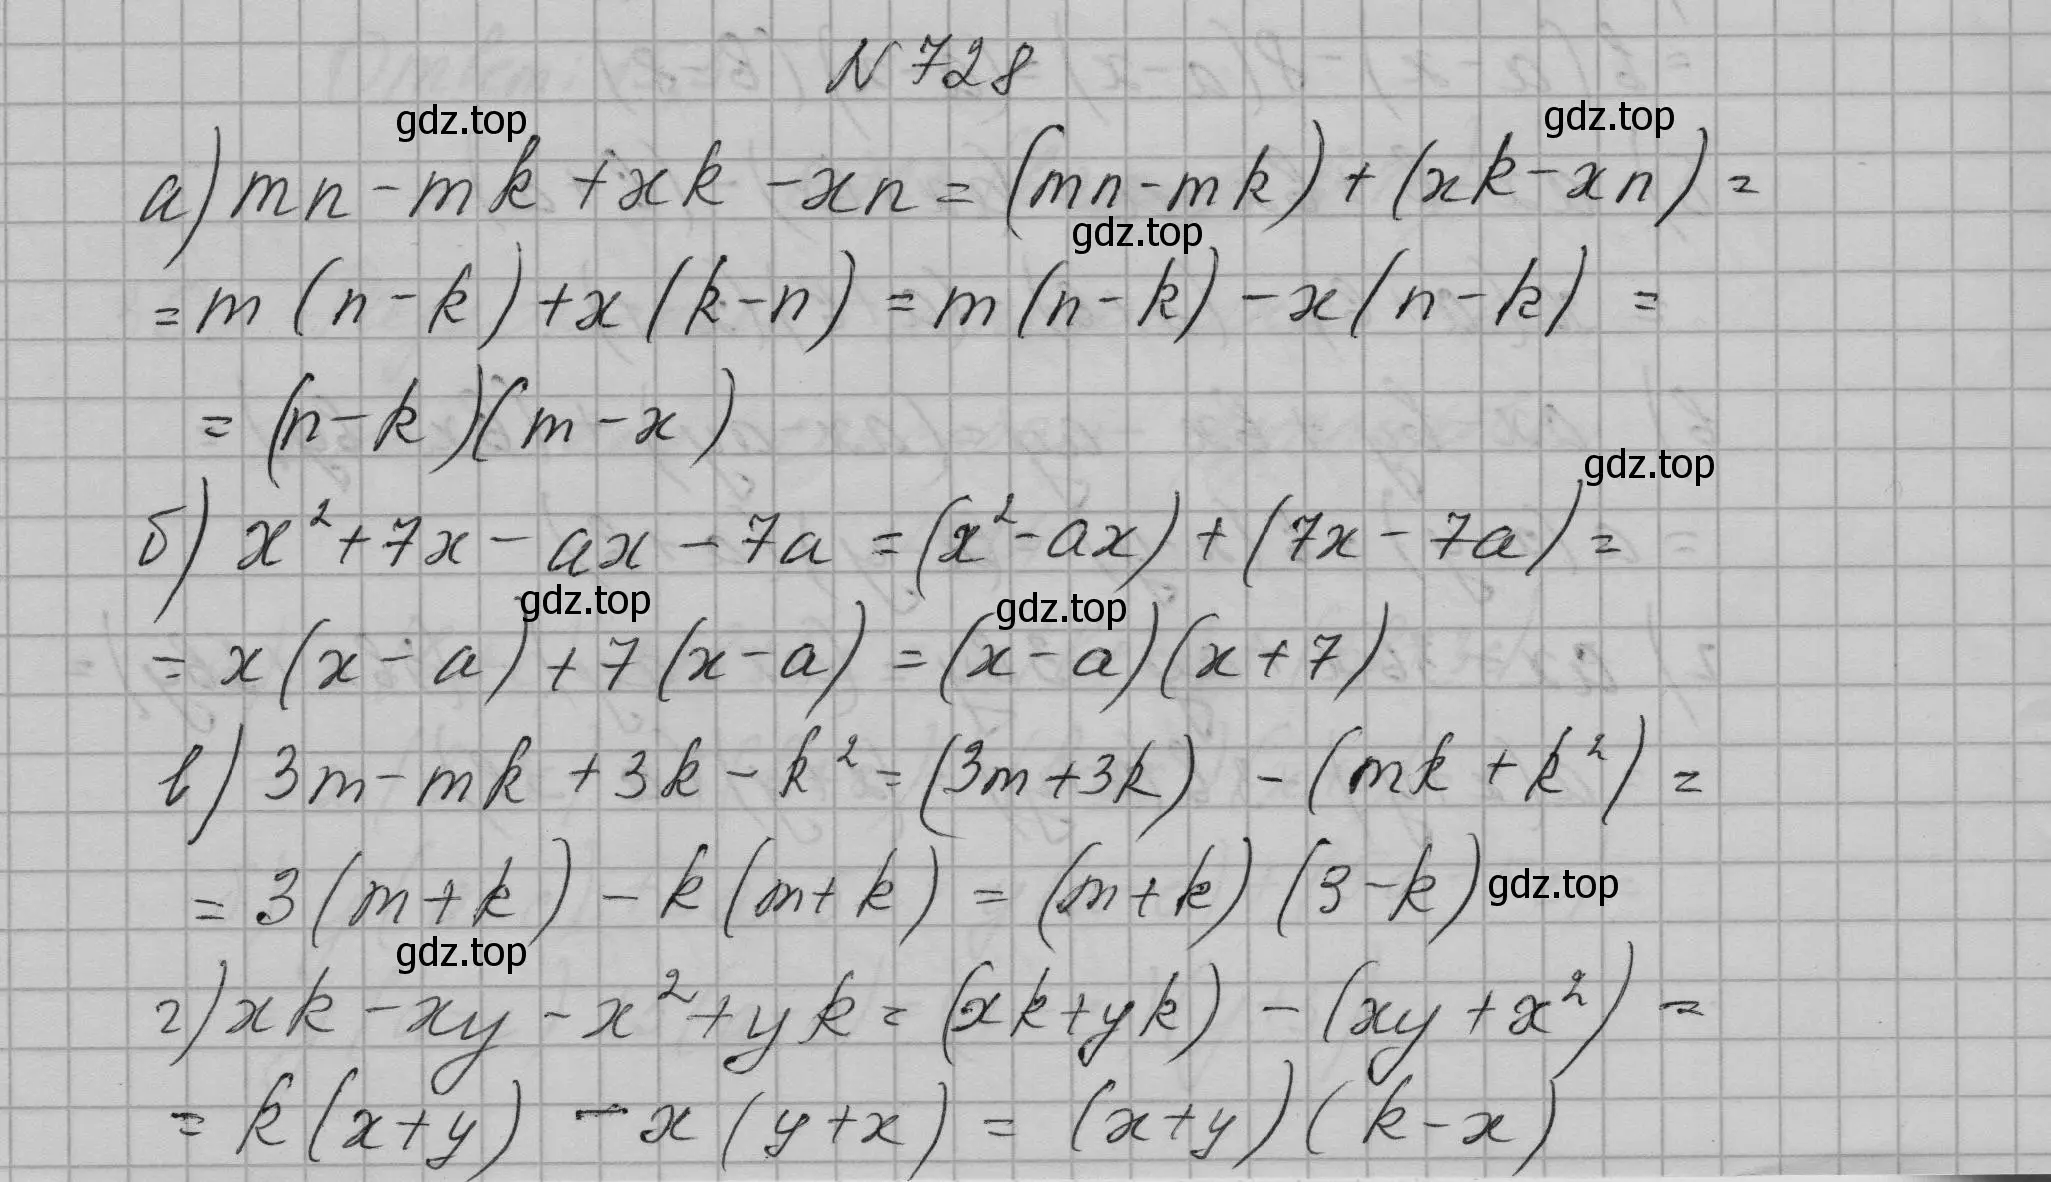 N 728
gdz.top
gdz.top
а) mn - mk + xk - xn = (mn - mk) + (xk - xn) =
gdz.top
= m (n - k) + x (k - n) = m (n - k) - x (n - k) =
= (n - k)(m - x)
gdz.top
б) x² + 7x - ax - 7a = (x² - ax) + (7x - 7a) =
gdz.top
gdz.top
= x (x - a) + 7 (x - a) = (x - a)(x + 7)
в) 3m - mk + 3k - k² = (3m + 3k) - (mk + k²) =
= 3 (m + k) - k (m + k) = (m + k) (3 - k) gdz.top
gdz.top
г) xk - xy - x² + yk = (xk + yk) - (xy + x²) =
= k (x + y) - x (y + x) = (x + y) (k - x)